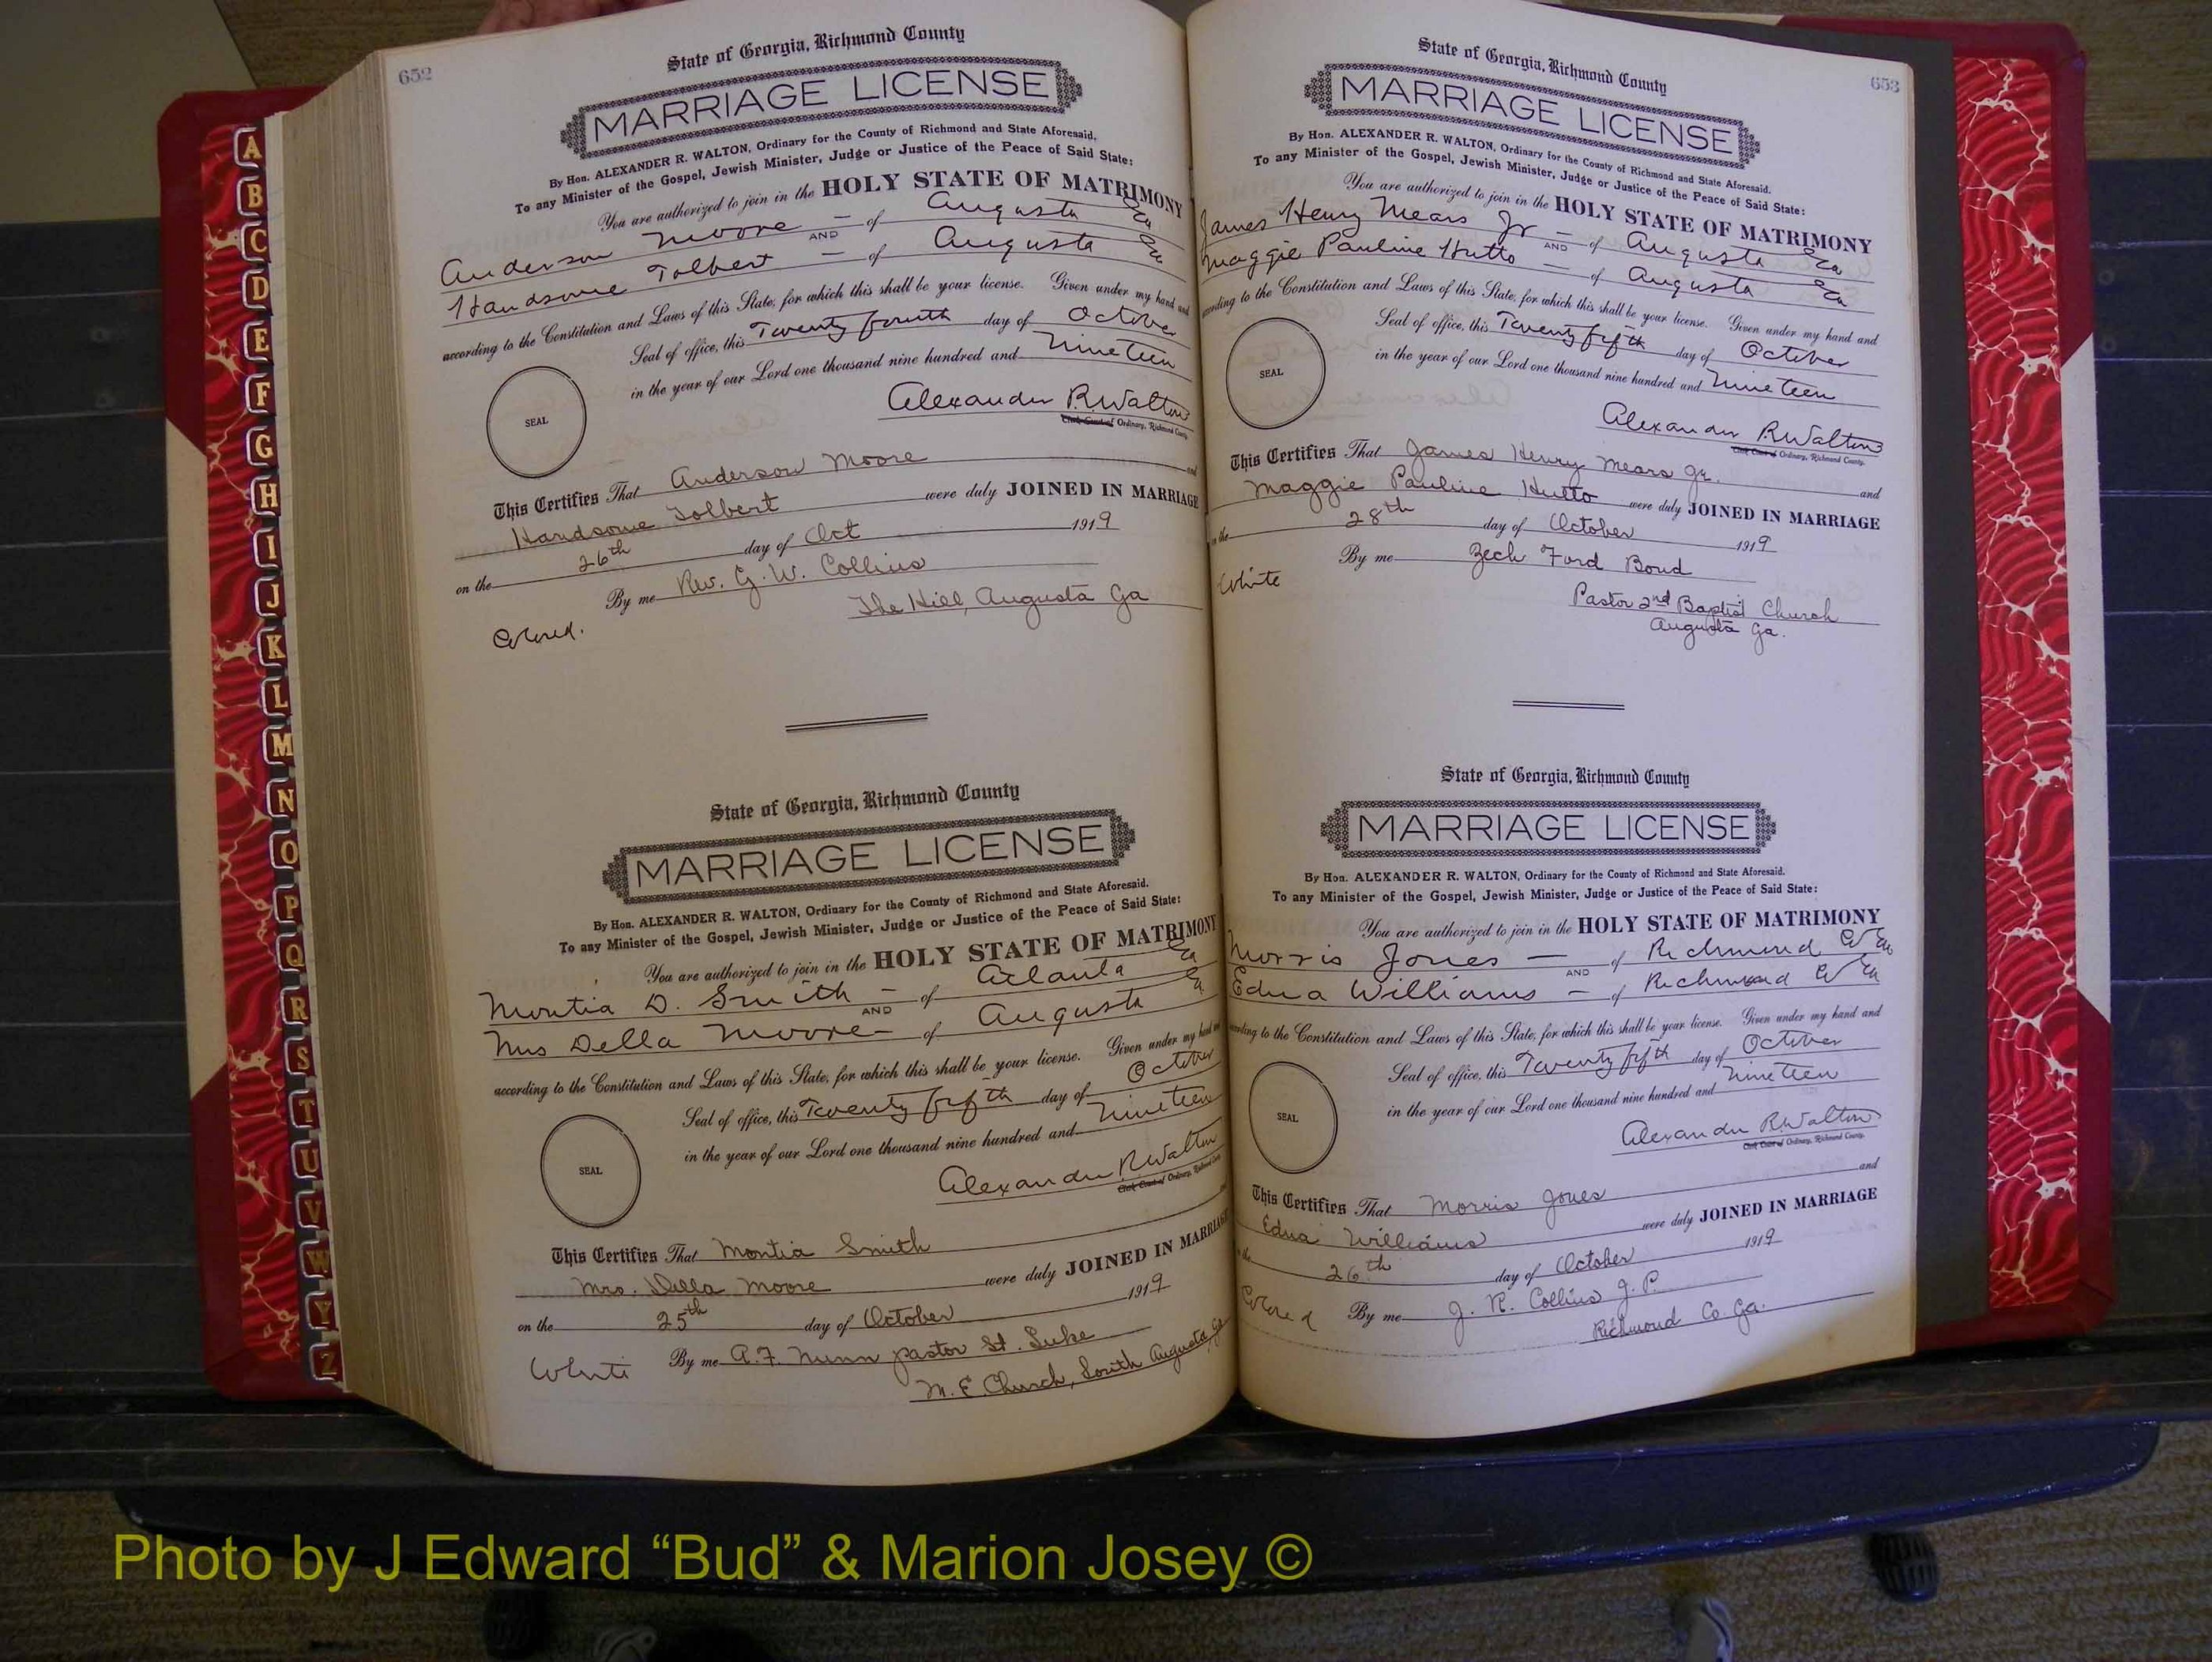 652
State of Georgia, Richmond County
MARRIAGE LICENSE
By Hon. ALEXANDER R. WALTON, Ordinary for the County of Richmond and State Aforesaid.
To any Minister of the Gospel, Jewish Minister, Judge or Justice of the Peace of Said State:
You are authorized to join in the HOLY STATE OF MATRIMONY
Anderson Moore — of Augusta Ga
AND
Handsome Tolbert — of Augusta Ga
according to the Constitution and Laws of this State, for which this shall be your license. Given under my hand and
Seal of office, this Twenty fourth day of October
in the year of our Lord one thousand nine hundred and Nineteen
SEAL
Alexander R. Walton
Clerk Court of Ordinary, Richmond County
This Certifies That Anderson Moore and
Handsome Tolbert were duly JOINED IN MARRIAGE
on the 26th day of Oct 1919
By me Rev. G. W. Collins
The Hill, Augusta Ga
Colored.
State of Georgia, Richmond County
MARRIAGE LICENSE
By Hon. ALEXANDER R. WALTON, Ordinary for the County of Richmond and State Aforesaid.
To any Minister of the Gospel, Jewish Minister, Judge or Justice of the Peace of Said State:
You are authorized to join in the HOLY STATE OF MATRIMONY
Montia D. Smith — of Atlanta Ga
AND
Mrs Della Moore — of Augusta Ga
according to the Constitution and Laws of this State, for which this shall be your license. Given under my hand and
Seal of office, this Twenty fifth day of October
in the year of our Lord one thousand nine hundred and Nineteen
SEAL
Alexander R. Walton
Clerk Court of Ordinary, Richmond County
This Certifies That Montia Smith
Mrs. Della Moore were duly JOINED IN MARRIAGE
on the 25th day of October 1919
White By me A. F. Nunn pastor St. Luke
M. E. Church, South Augusta, Ga
653
State of Georgia, Richmond County
MARRIAGE LICENSE
By Hon. ALEXANDER R. WALTON, Ordinary for the County of Richmond and State Aforesaid.
To any Minister of the Gospel, Jewish Minister, Judge or Justice of the Peace of Said State:
You are authorized to join in the HOLY STATE OF MATRIMONY
James Henry Mears Jr — of Augusta Ga
AND
Maggie Pauline Hutto — of Augusta Ga
according to the Constitution and Laws of this State, for which this shall be your license. Given under my hand and
Seal of office, this Twenty fifth day of October
in the year of our Lord one thousand nine hundred and Nineteen
SEAL
Alexander R. Walton
Clerk Court of Ordinary, Richmond County.
This Certifies That James Henry Mears Jr. and
Maggie Pauline Hutto were duly JOINED IN MARRIAGE
on the 28th day of October 1919
White By me Zech Ford Bond
Pastor 2nd Baptist Church
Augusta Ga.
State of Georgia, Richmond County
MARRIAGE LICENSE
By Hon. ALEXANDER R. WALTON, Ordinary for the County of Richmond and State Aforesaid.
To any Minister of the Gospel, Jewish Minister, Judge or Justice of the Peace of Said State:
You are authorized to join in the HOLY STATE OF MATRIMONY
Morris Jones — of Richmond Co Ga
AND
Edna Williams — of Richmond Co Ga
according to the Constitution and Laws of this State, for which this shall be your license. Given under my hand and
Seal of office, this Twenty fifth day of October
in the year of our Lord one thousand nine hundred and Nineteen
SEAL
Alexander R. Walton
Clerk Court of Ordinary, Richmond County.
This Certifies That Morris Jones and
Edna Williams were duly JOINED IN MARRIAGE
on the 26th day of October 1919
Colored By me J. R. Collins J. P.
Richmond Co. Ga.
A
B
C
D
E
F
G
H
I
J
K
L
M
N
O
P
Q
R
S
T
U
V
W
Y
Z
Photo by J Edward “Bud” & Marion Josey ©